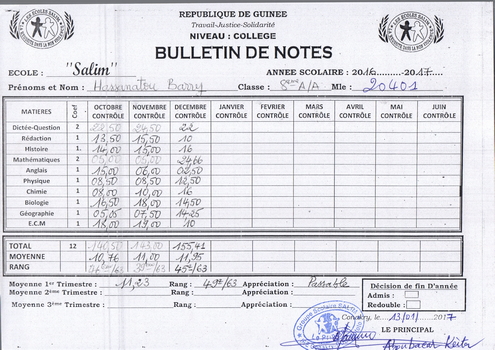 REPUBLIQUE DE GUINEE
Travail-Justice-Solidarité
NIVEAU : COLLEGE
BULLETIN DE NOTES
ECOLE : "Salim" ANNEE SCOLAIRE : 2016......2017
Prénoms et Nom : Hassanatou Barry Classe : 8ème A/A Mle : 20401
MATIERES Coef OCTOBRE CONTRÔLE NOVEMBRE CONTRÔLE DECEMBRE CONTRÔLE JANVIER CONTRÔLE FEVRIER CONTRÔLE MARS CONTRÔLE AVRIL CONTRÔLE MAI CONTRÔLE JUIN CONTRÔLE
Dictée-Question 2 22
Rédaction 1 13,50 15,50 10
Histoire 1 14,00 15,00 16
Mathématiques 2 24,66
Anglais 1 15,00 06,00 02,50
Physique 1 08,50 08,50 12,50
Chimie 1 08,00 10,00 16
Biologie 1 16,50 18,00 14,50
Géographie 1 05,05 07,50 14,25
E.C.M 1 18,00 19,00 10
TOTAL 12 140,50 143,00 155,41
MOYENNE 10,76 11,00 11,95
RANG 45e/63
Moyenne 1er Trimestre : 11,23 Rang : 49e/63 Appréciation : Passable
Moyenne 2ème Trimestre : Rang : Appréciation :
Moyenne 3ème Trimestre : Rang : Appréciation :
Décision de fin D'année
Admis :
Redouble :
Conakry, le 13/01/2017
LE PRINCIPAL
Aboubacar Keita